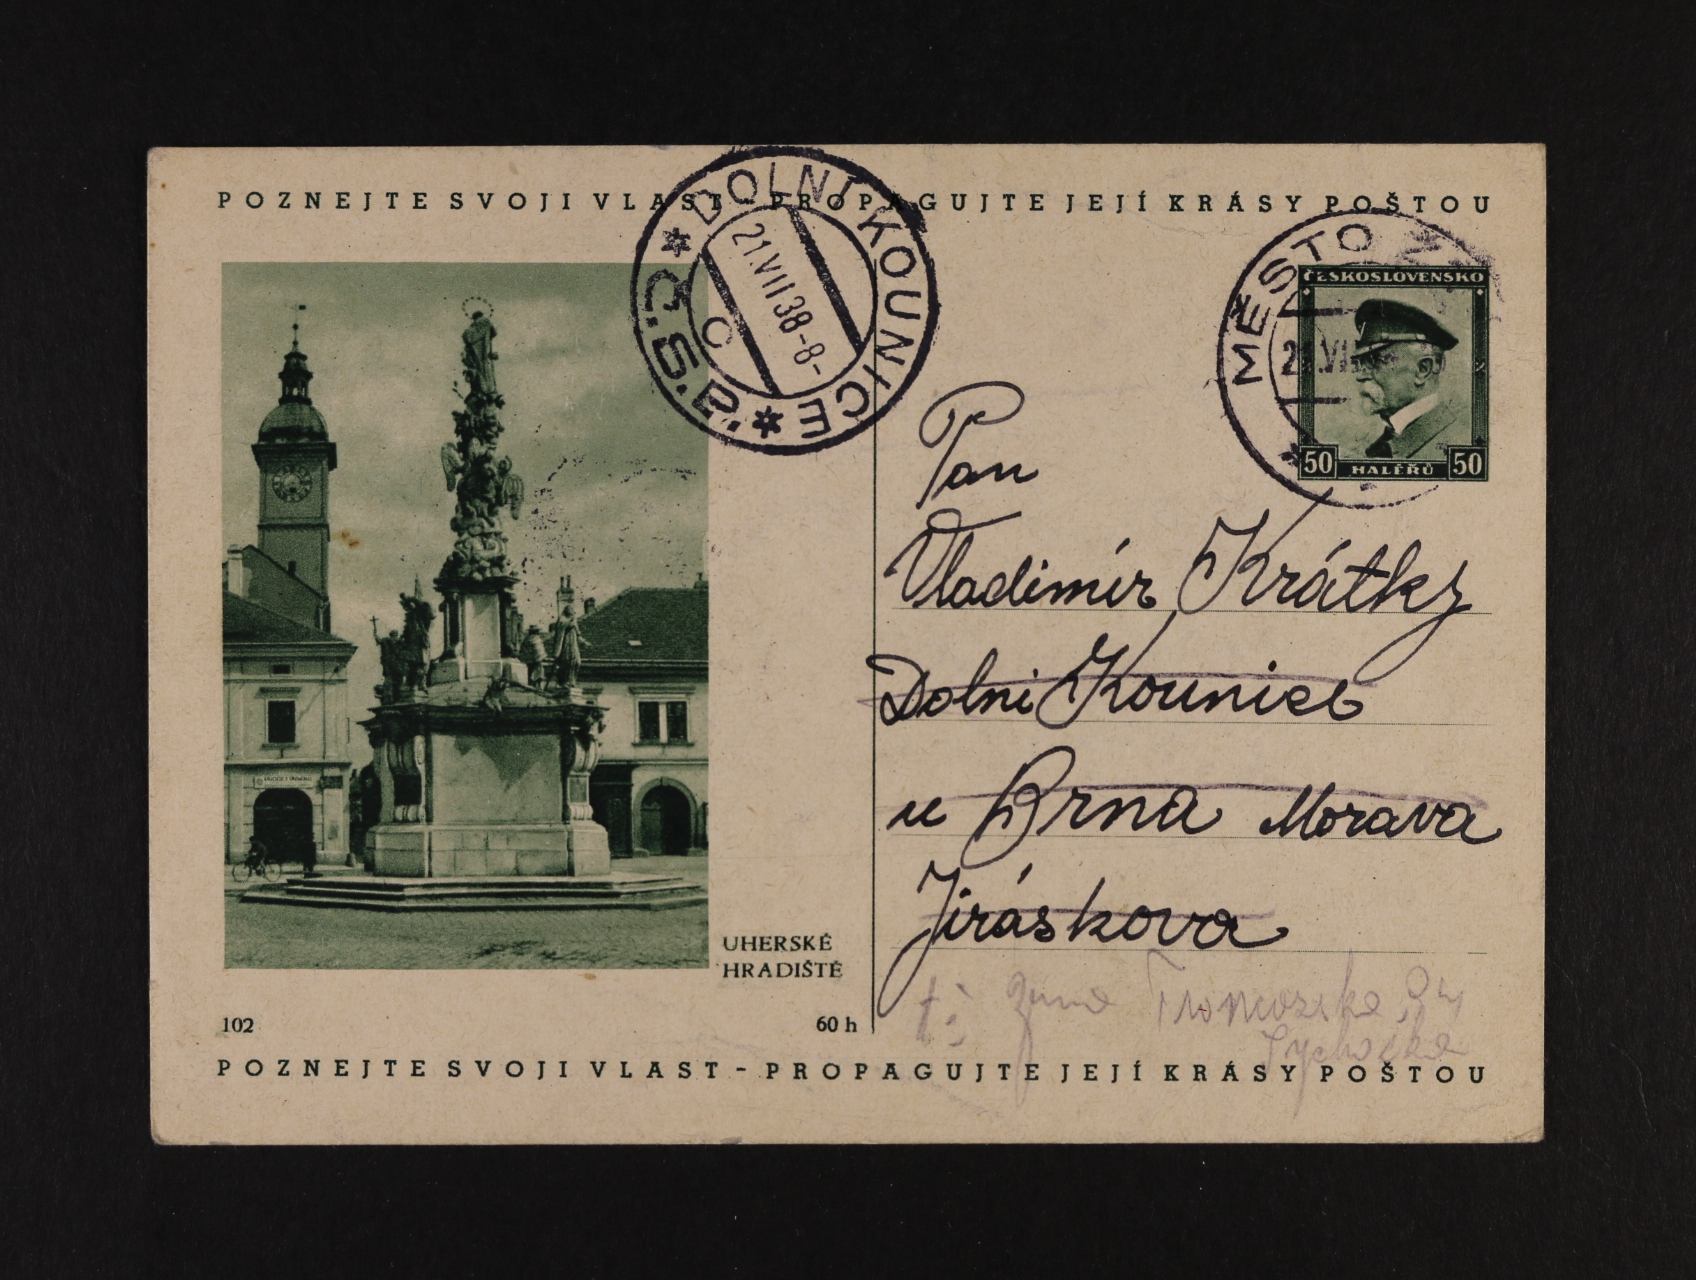 POZNEJTE SVOJI VLAST - PROPAGUJTE JEJÍ KRÁSY POŠTOU
DOLNÍ KOUNICE
Č.S.P.
21.VII 38-8-
c
MĚSTO
ČESKOSLOVENSKO
50 HALÉŘŮ 50
Pan
Vladimír Krátký
Dolní Kounice
u Brna Morava
Jiráskova
UHERSKÉ
HRADIŠTĚ
102
60 h
POZNEJTE SVOJI VLAST - PROPAGUJTE JEJÍ KRÁSY POŠTOU